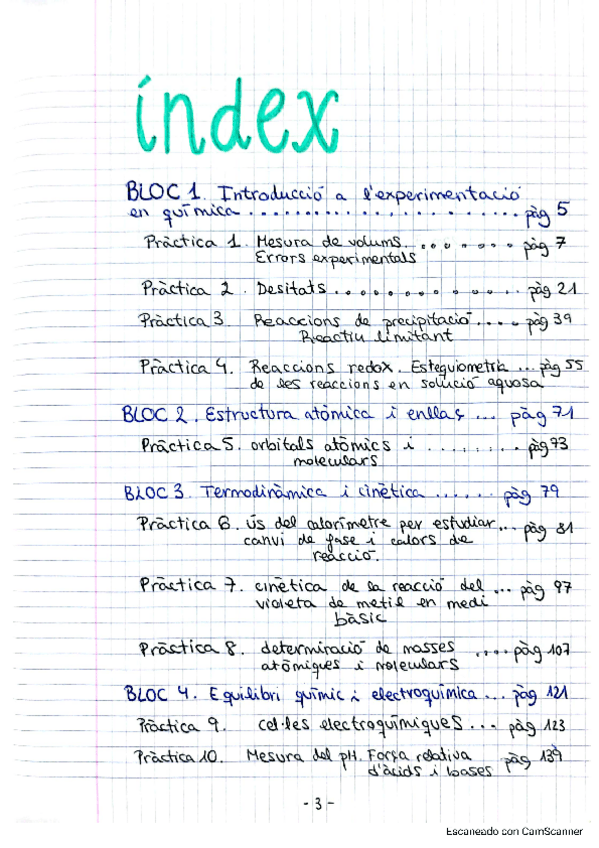 índex
BLOC 1. Introducció a l'experimentació
en química ...................... pàg 5
Pràctica 1. Mesura de volums. ....... pàg 7
Errors experimentals
Pràctica 2. Desitats ............. pàg 21
Pràctica 3. Reaccions de precipitació .... pàg 39
Reactiu limitant
Pràctica 4. Reaccions redox. Estequiometria ... pàg 55
de les reaccions en solució aquosa
BLOC 2. Estructura atòmica i enllaç ... pàg 71
Pràctica 5. orbitals atòmics i ........ pàg 73
moleculars
BLOC 3. Termodinàmica i cinètica ...... pàg 79
Pràctica 6. ús del calorímetre per estudiar... pàg 81
canvi de fase i calors de
reacció.
Pràctica 7. cinètica de la reacció del ... pàg 97
violeta de metil en medi
bàsic
Pràctica 8. determiració de masses .... pàg 107
atòmiques i moleculars
BLOC 4. Equilibri químic i electroquímica ... pàg 121
Pràctica 9. cel·les electroquímiques ... pàg 123
Pràctica 10. Mesura del pH. Força relativa pàg 139
d'àcids i bases
- 3 -
Escaneado con CamScanner